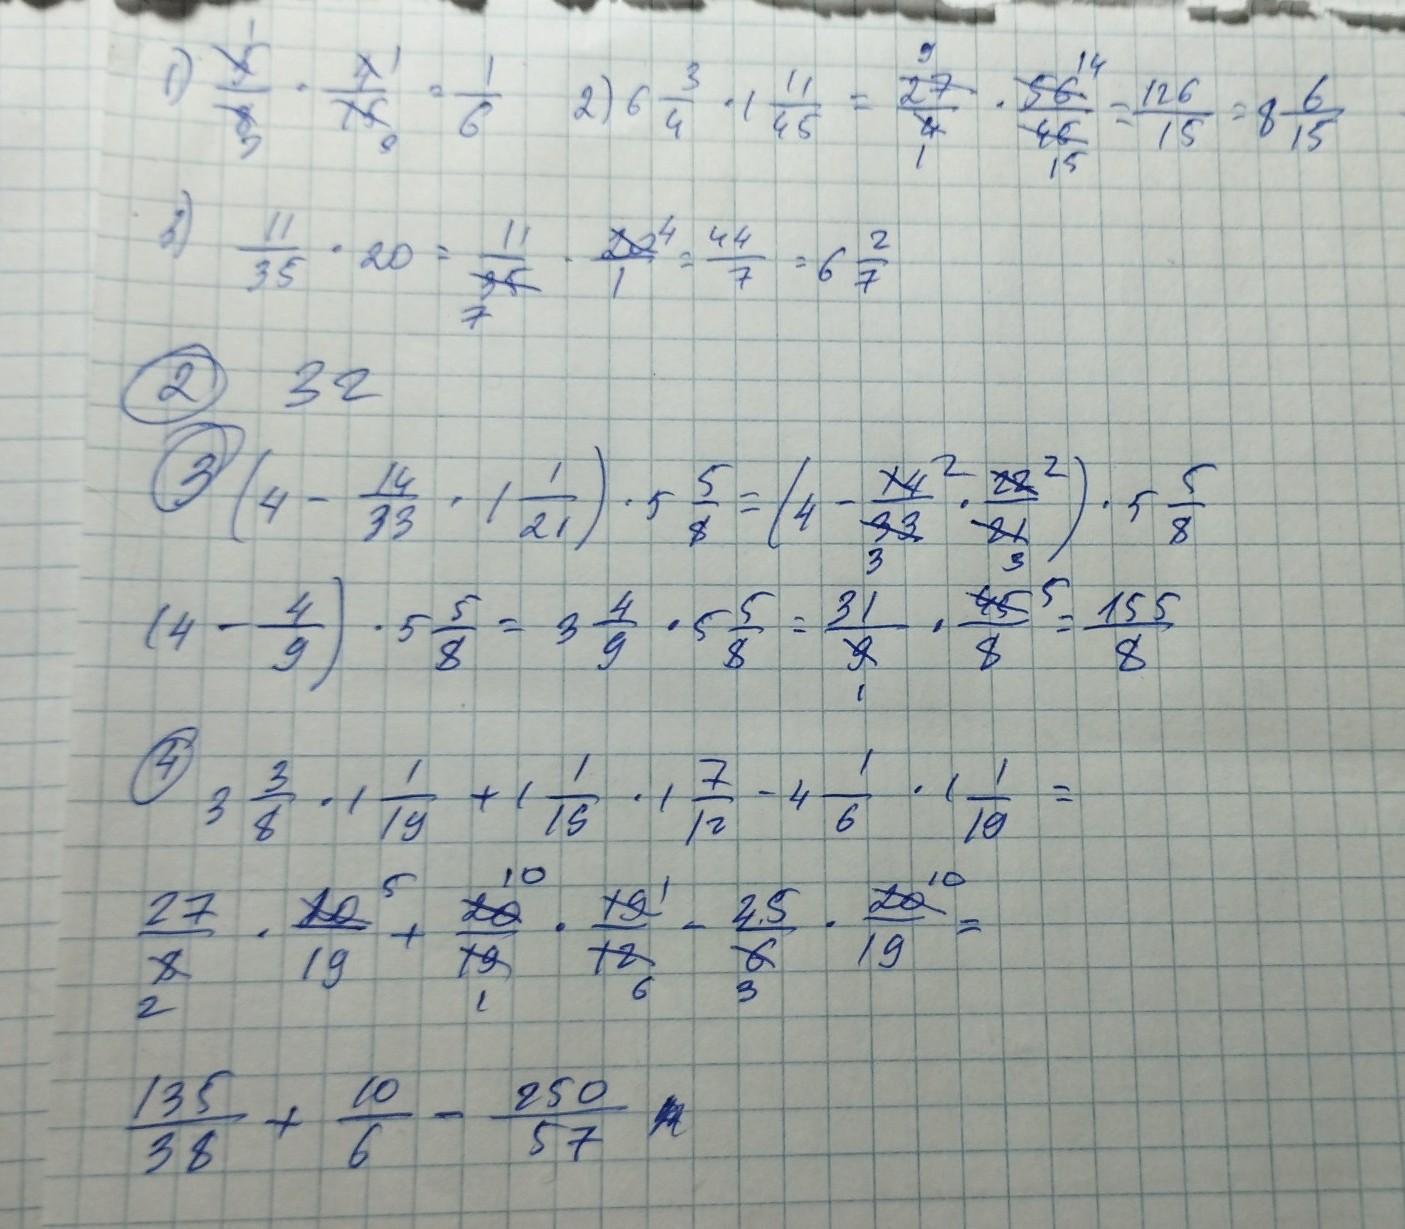 1) 5/8 · 4/15 = 1/6 2) 6 3/4 · 1 11/45 = 27/4 · 56/45 = 126/15 = 8 6/15
3) 11/35 · 20 = 11/35 · 20/1 = 44/7 = 6 2/7
2 32
3 (4 - 14/33 · 1 1/21) · 5 5/8 = (4 - 14/33 · 22/21) · 5 5/8
(4 - 4/9) · 5 5/8 = 3 4/9 · 5 5/8 = 31/9 · 45/8 = 155/8
4 3 3/8 · 1 1/19 + 1 1/19 · 1 7/12 - 4 1/6 · 1 1/19 =
27/8 · 20/19 + 20/19 · 19/12 - 25/6 · 20/19 =
135/38 + 10/6 - 250/57